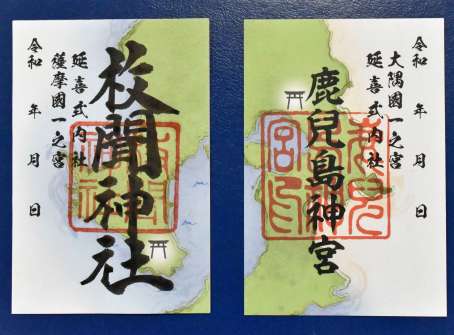 大隅國一之宮
延喜式内社
鹿兒島神宮
令和　年　月　日
延喜式内社
薩摩國一之宮
枚聞神社
令和　年　月　日